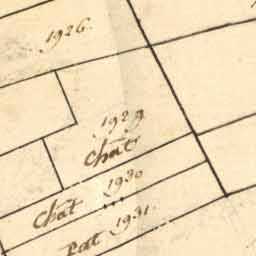 1926.
1929
Chāt
1930
Chāt
1931.
Pat